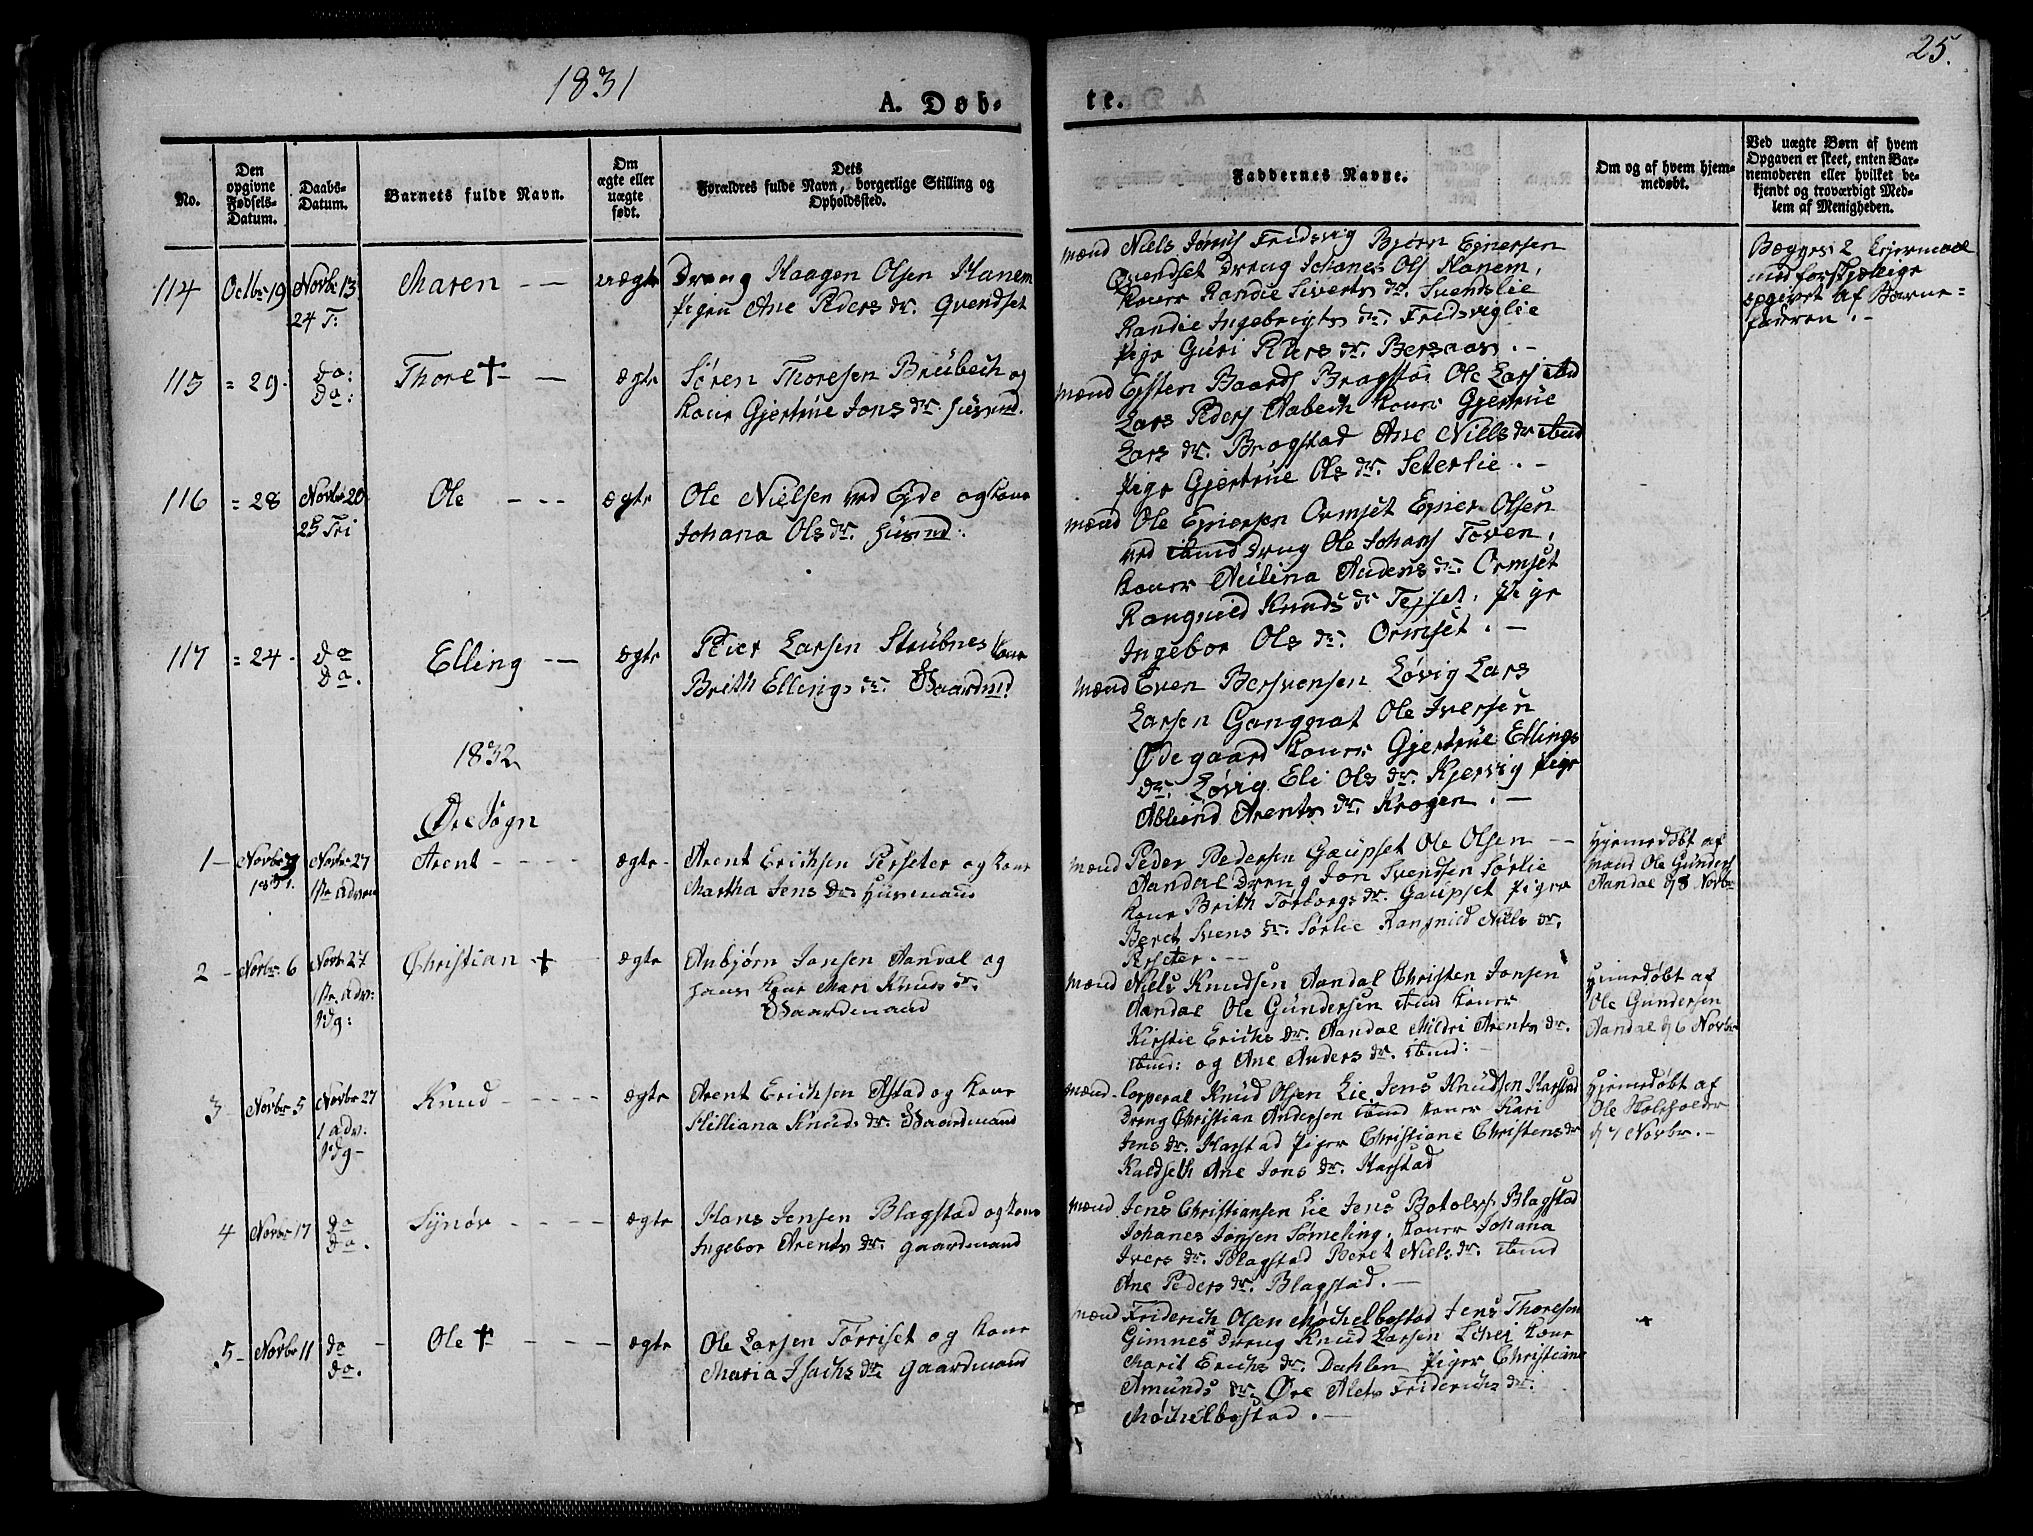 1831
25.
A. Døb-
te.
No.
Den opgivne Fødsels-Datum.
Daabs-Datum.
Barnets fulde Navn.
Om ægte eller uægte født.
Dets Forældres fulde Navn, borgerlige Stilling og Opholdssted.
Faddernes Navne.
Om og af hvem hjem-medøbt.
Ved uægte Børn af hvem Opgaven er skeet, enten Bar-nemoderen eller hvilket be-kjendt og troværdigt Med-lem af Menigheden.
114 Octbr 19 Novbr 13 Maren - - uægte Dreng Haagen Olsen Hanem
24 T: Pigen Ane Peders dr. Qvendset
mænd Niels Jørns Fridsvig Bjørn Ejnersen
Qvendset Dreng Johanes Ols Hanem,
koner Randie Siverts dr. Svendslie
Randie Ingebrigts dr. Fridsviglie
Pige Guri Peders dr. Bersaas. -
Begges 2 Lejermaal
med forskjellige
opgivet af Barne=
faderen. -
115 = 29. do: Thore + - - ægte Søren Thoresen Brubech og
do: kone Gjertrue Jons dr. Husmd.
mænd Eysten Baards Bragstad Ole Lars ibid
Lars Peders Aabech koner Gjertrue
Lars dr. Bragstad Ane Niels dr ibid
Pige Gjertrue Ols dr. Seterlie. -
116 = 28 Novbr 20 Ole - - - ægte Ole Nielsen ved Ejde og kone
25 Tri Johana Ols dr. Husmd:
mænd Ole Ejnersen Ormset Ejner Olsen
ved ibid Dreng Ole Johans Toven,
koner Aulina Audens dr. Ormset
Rangnild Knuds dr Tejset. Pige
Ingebor Ols dr. Ormset. -
117 = 24. do Elling - - ægte Peder Larsen Strubnes kone
do. Brith Ellings dr. Gaardmd
mænd Even Bersvensen Løvig Lars
Larsen Gangnat Ole Iversen
Ødegaard koner Gjertrue Ellings
dr. Løvig Eli Ols dr. Kjervig Pige
Ablund Arents dr. Krogen. -
1832
Øre Sogn
1 - Novbr 7 Novbr 27 Arent - - - - ægte - Arent Erichsen Perseter og kone
1831. 1ste Adven Martha Jens dr Husmand
mænd Peder Pedersen Gaupset Ole Olsen -
Aandal Dreng Jon Svendsen Sørlie
kone Brith Torborgs dr. Gaupset Piger
Beret Svens dr. Sørlie Rangnild Niels dr.
Perseter. - -
Hjemedøbt af
mand Ole Gunders
Aandal d 8 Novbr
2 - Novbr. 6 Novbr 27 Christian - + - ægte Anbjørn Jonsen Aandal og
1ste Adv: hans kone Mari Knuds dr.
Sdg: Gaardmand
mænd Niels Knudsen Aandal Christen Jonsen
Aandal Ole Gundersen ibid koner
Kirstie Erichs dr. Aandal Mildri Arents dr.
ibid: og Ane Anders dr. ibid: -
Hjemedøbt af
Ole Gundersen
Aandal d 6 Novbr
3 - Novbr 5 Novbr 27 Knud - - - - - ægte Arent Erichsen Alstad og kone
1 adv: Silliana Knuds dr. Gaardmand
Sdg -
mænd - Corperal Knud Olsen Lie Jens Knudsen Harstad
Dreng Christian Andersen ibid koner Kari
Jens dr. Harstad Piger Christiane Christens dr
Kaldseth Ane Jons dr. Harstad
Hjemedøbt af
Ole Holsholder
d 7 Novbr. -
4 Novbr 17 do Synøv - - - - ægte Hans Jensen Blagstad og kone
do. Ingebor Arents dr. gaardmand
mænd Jens Christiansen Lie Jens Botolvs. Blagstad
Johanes Jonsen Sømeling. koner Johana
Ivers dr. Blagstad Beret Niels dr. ibid
Ane Peders dr. Blagstad. -
5 - Novbr 11 do - Ole + - - - ægte Ole Larsen Torriset og kone
do. Maria Isachs dr gaardmand
mænd Friderich Olsen Møchelbostad Jens Thoresen
Gimnes Dreng Knud Larsen Lihei kone
Marit Erichs dr. Dahlen Piger Christiane
Amunds dr. Øre Alet Friderichs dr.
Møchelbostad. -